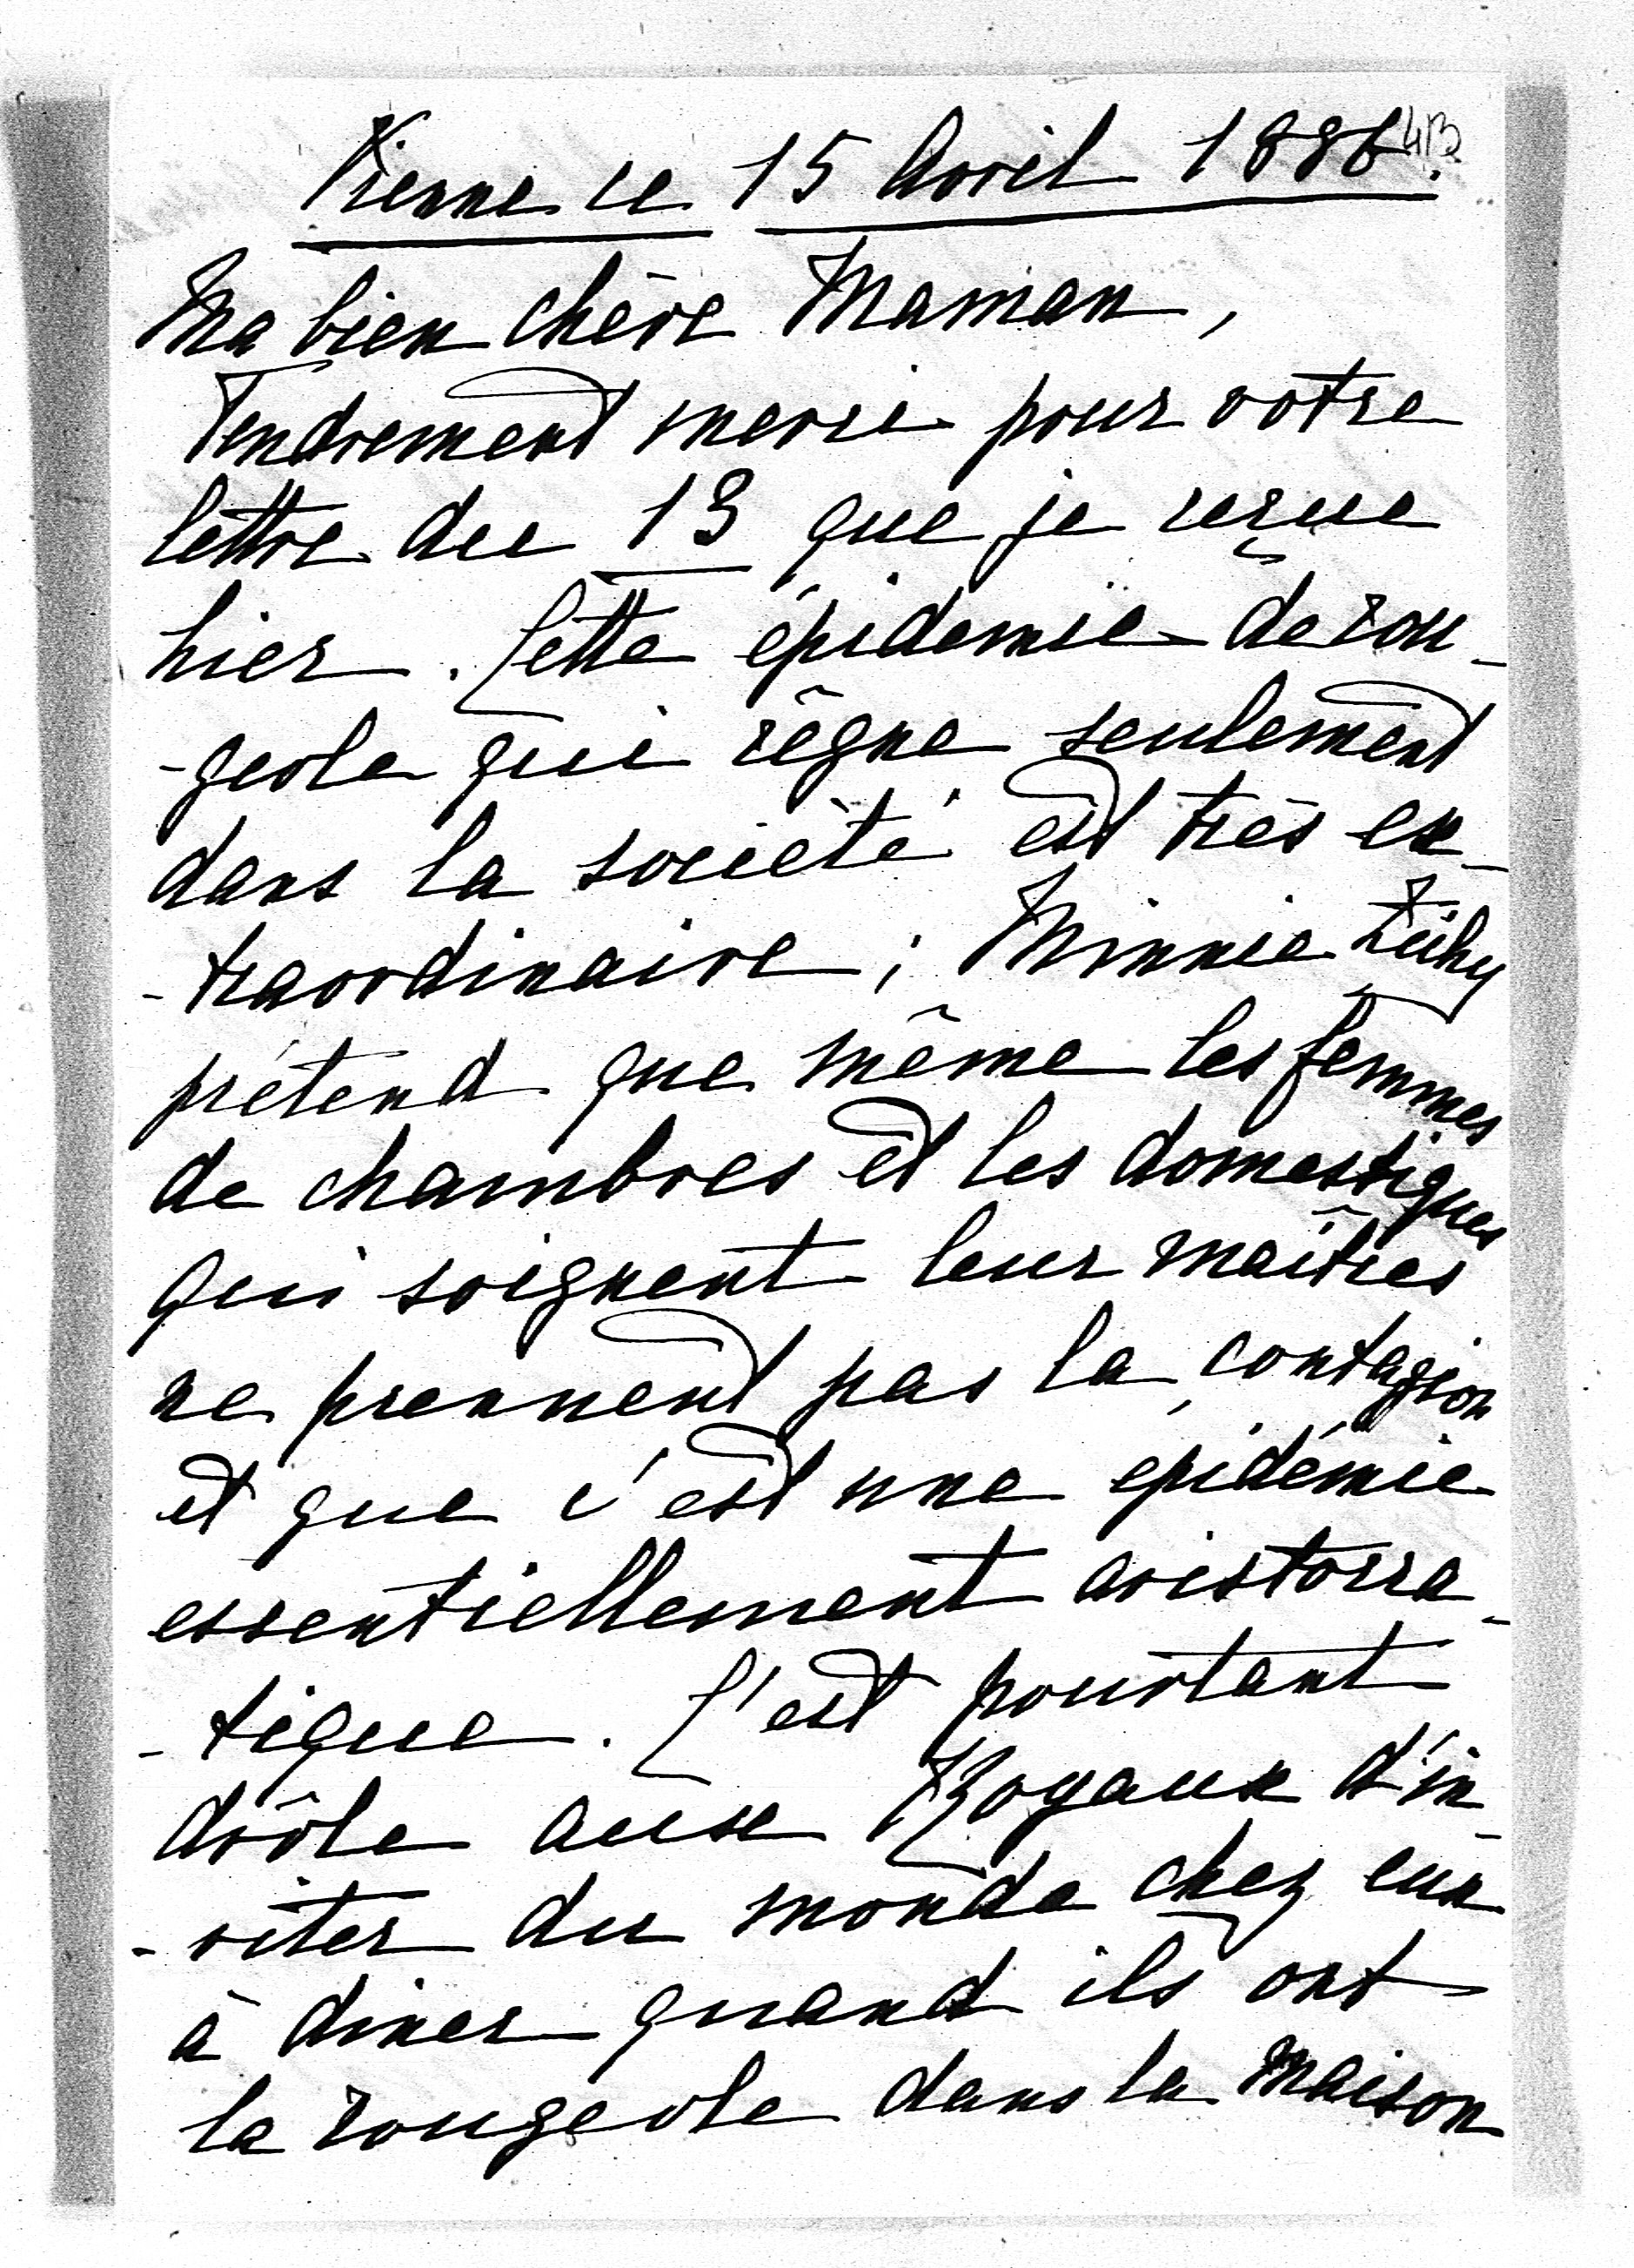 413
Vienne le 15 Avril 1886.
Ma bien chère Maman,
Tendrement merci pour votre
lettre du 13 que je reçue
hier. Cette épidemie de rou-
-geole qui règne seulement
dans la société est très ex-
-traordinaire; Minnie Zichy
prétend que même les femmes
de chambres et les domestiques
qui soignent leur maîtres
ne prennent pas la contagion
et que c'est une épidémie
essentiellement aristocra-
-tique. C'est pourtant
drôle aux Royaux d'in-
-viter du monde chez eux
à diner quand ils ont
la rougeole dans la maison